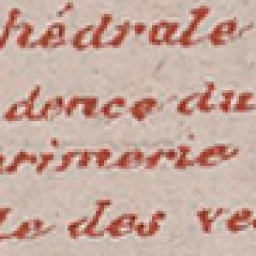 hédrale
dence du
primerie
le des ve